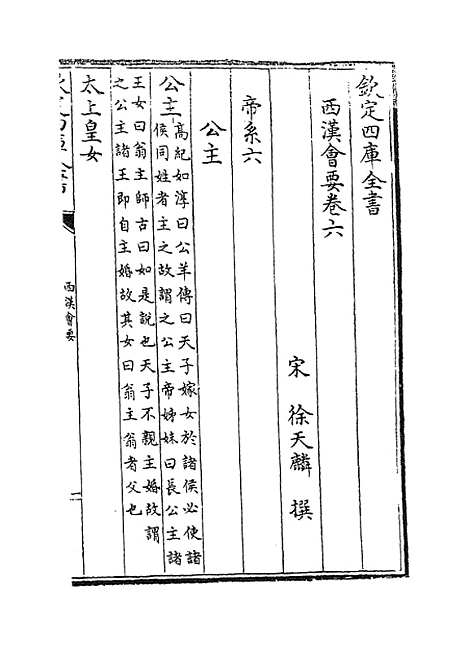 欽定四庫全書
西漢會要卷六
宋 徐天麟 撰
帝系六
公主
公主 高紀如淳曰公羊傳曰天子嫁女於諸侯必使諸
侯同姓者主之故謂之公主帝姊妹曰長公主諸
王女曰翁主師古曰如是說也天子不親主婚故謂
之公主諸王即自主婚故其女曰翁主翁者父也
太上皇女
西漢會要